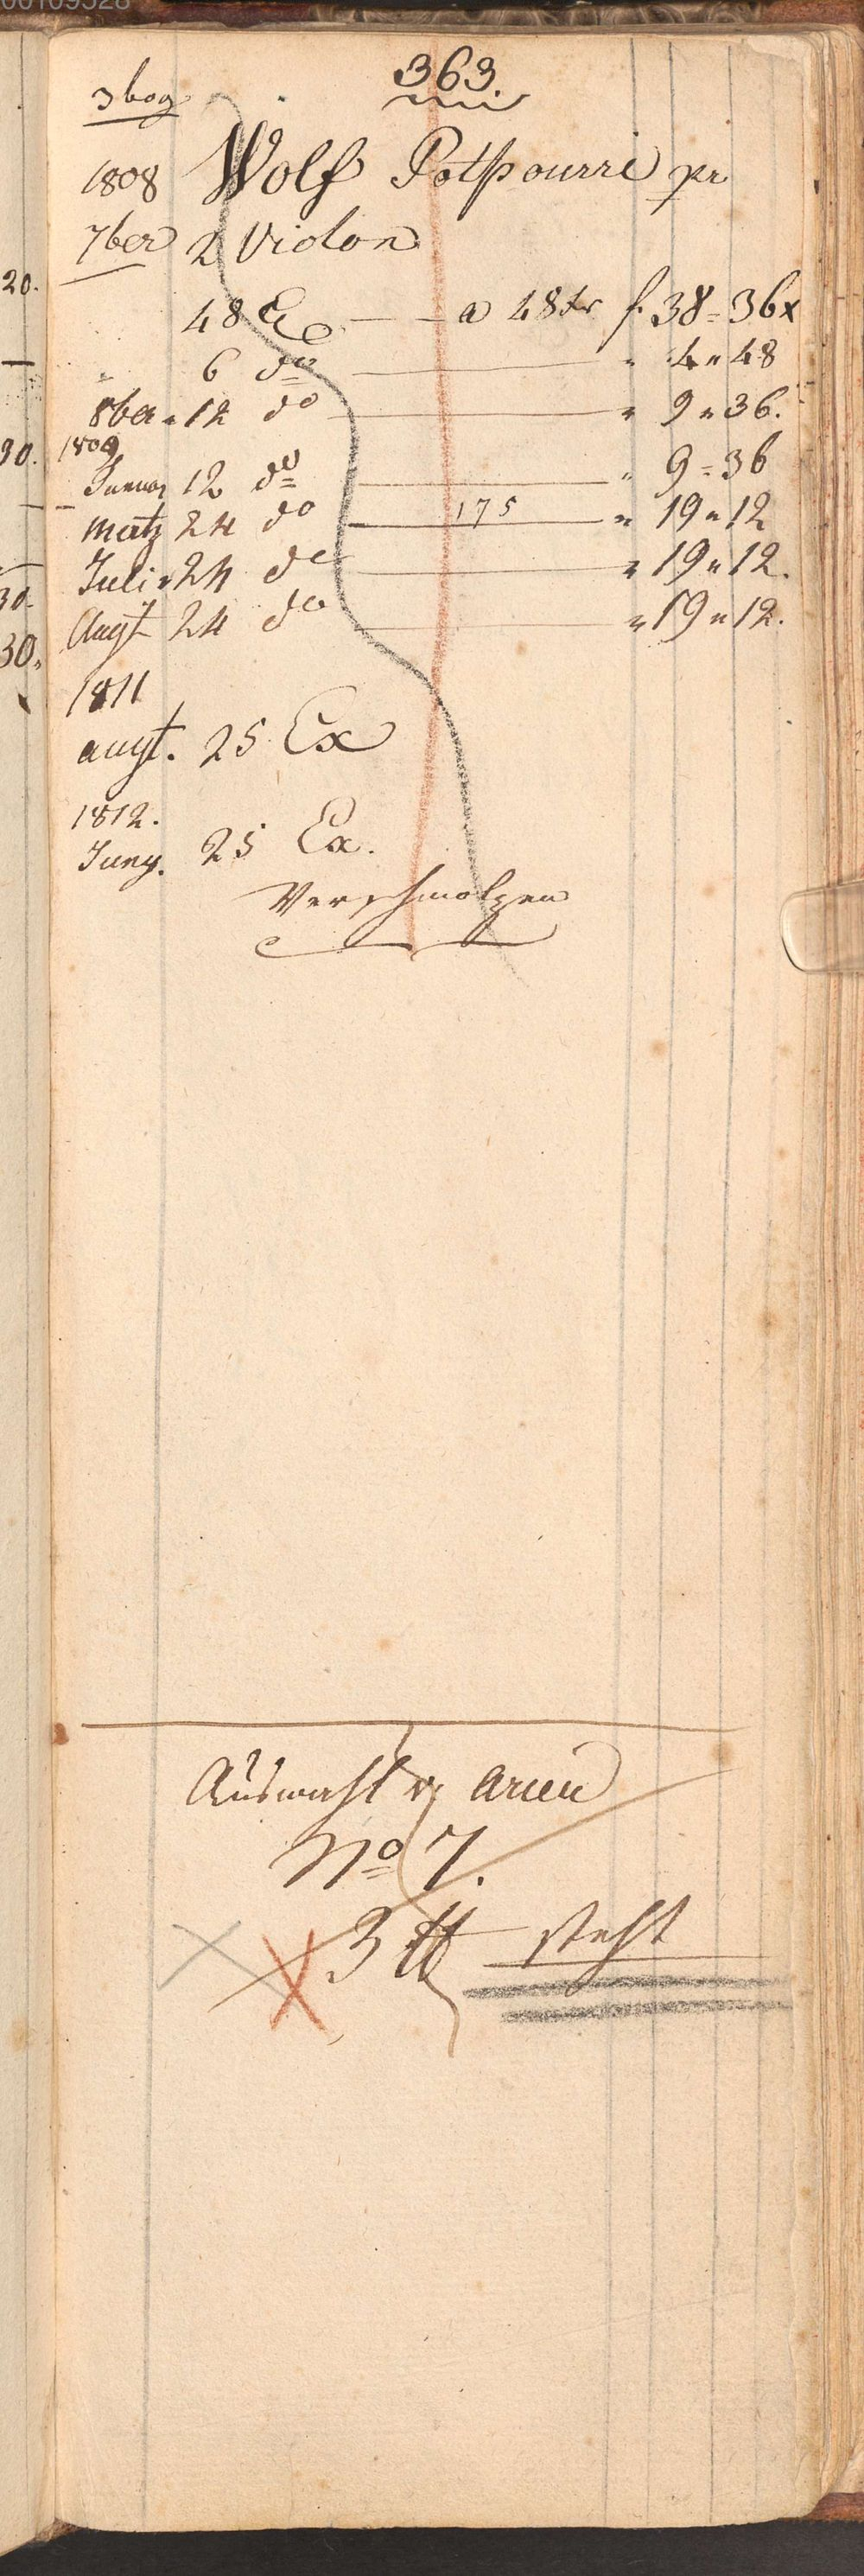 00109528
363.
3 bog
1808 Wolf Potpourri pr
7ber 2 Violon
48 Ex — a 48 xr f. 38 = 36 x
6 do — " 4 " 48
8ber " 12 do — " 9 " 36.
1809
Januar 12 do — " 9 = 36
Martz 24 do — 175 — " 19 " 12
Juli " 24 do — " 19 " 12.
Augt 24 do — " 19 " 12.
1811
augt. 25 Ex
1812.
Juny. 25 Ex.
Verschmolzen
Auswahl v. Arien
No 7.
3 ℔ steht
20.
30.
30.
30.